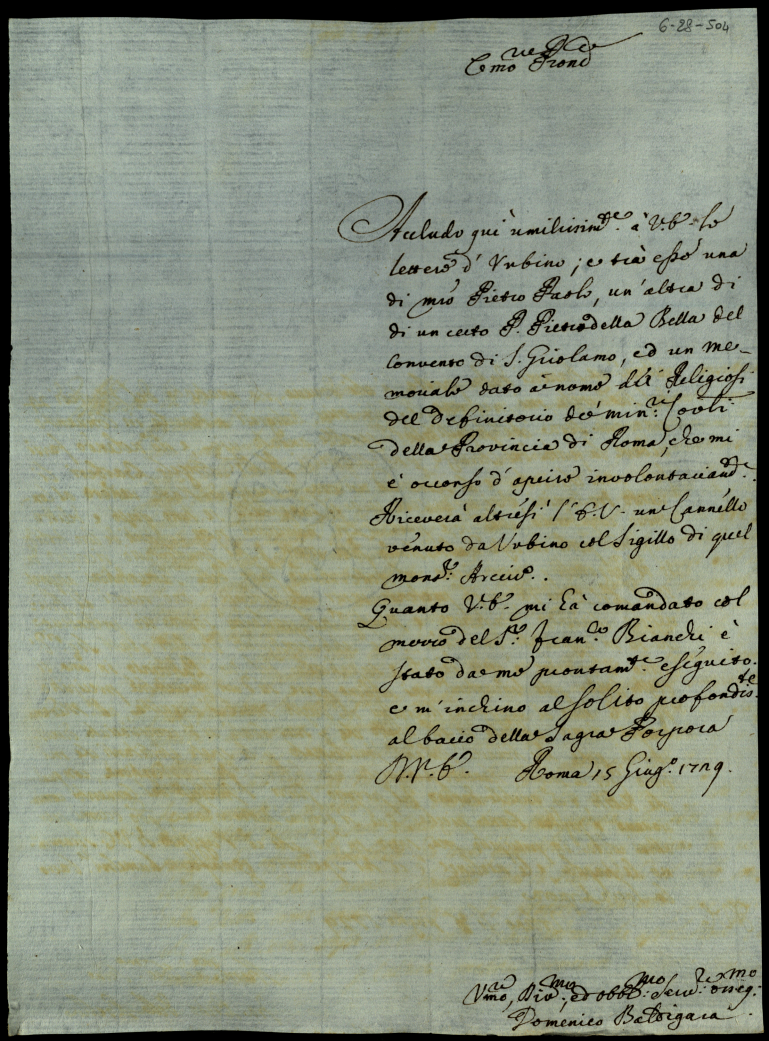 6-28-504
Em̃o Prone
Accludo quì umilissimte. à V.E. le
lettere d'Urbino; e trà esse una
di mro Pietro Paolo, un'altra di
di un certo P. Pietro della Bella del
Convento di S. Girolamo, ed un me-
moriale dato à nome dei Religiosi
del Definitorio de' minri. Convli
della Provincia di Roma, che mi
è occorso d'aprire involontariamte.
Riceverà altresì l'E.V. un Cannello
venuto da Urbino col Sigillo di quel
monsr. Arciv.
Quanto V.E. mi hà comandato col
mezzo del Sr. Franco Bianchi è
stato da me prontamte. eseguito.
e m'inchino al solito profondiste.
al bacio della Sagra Porpora
Roma 15 Giugo. 1729.
Vmo, Divmo, ed obbmo: Serre: osseqmo
Domenico Baldigara